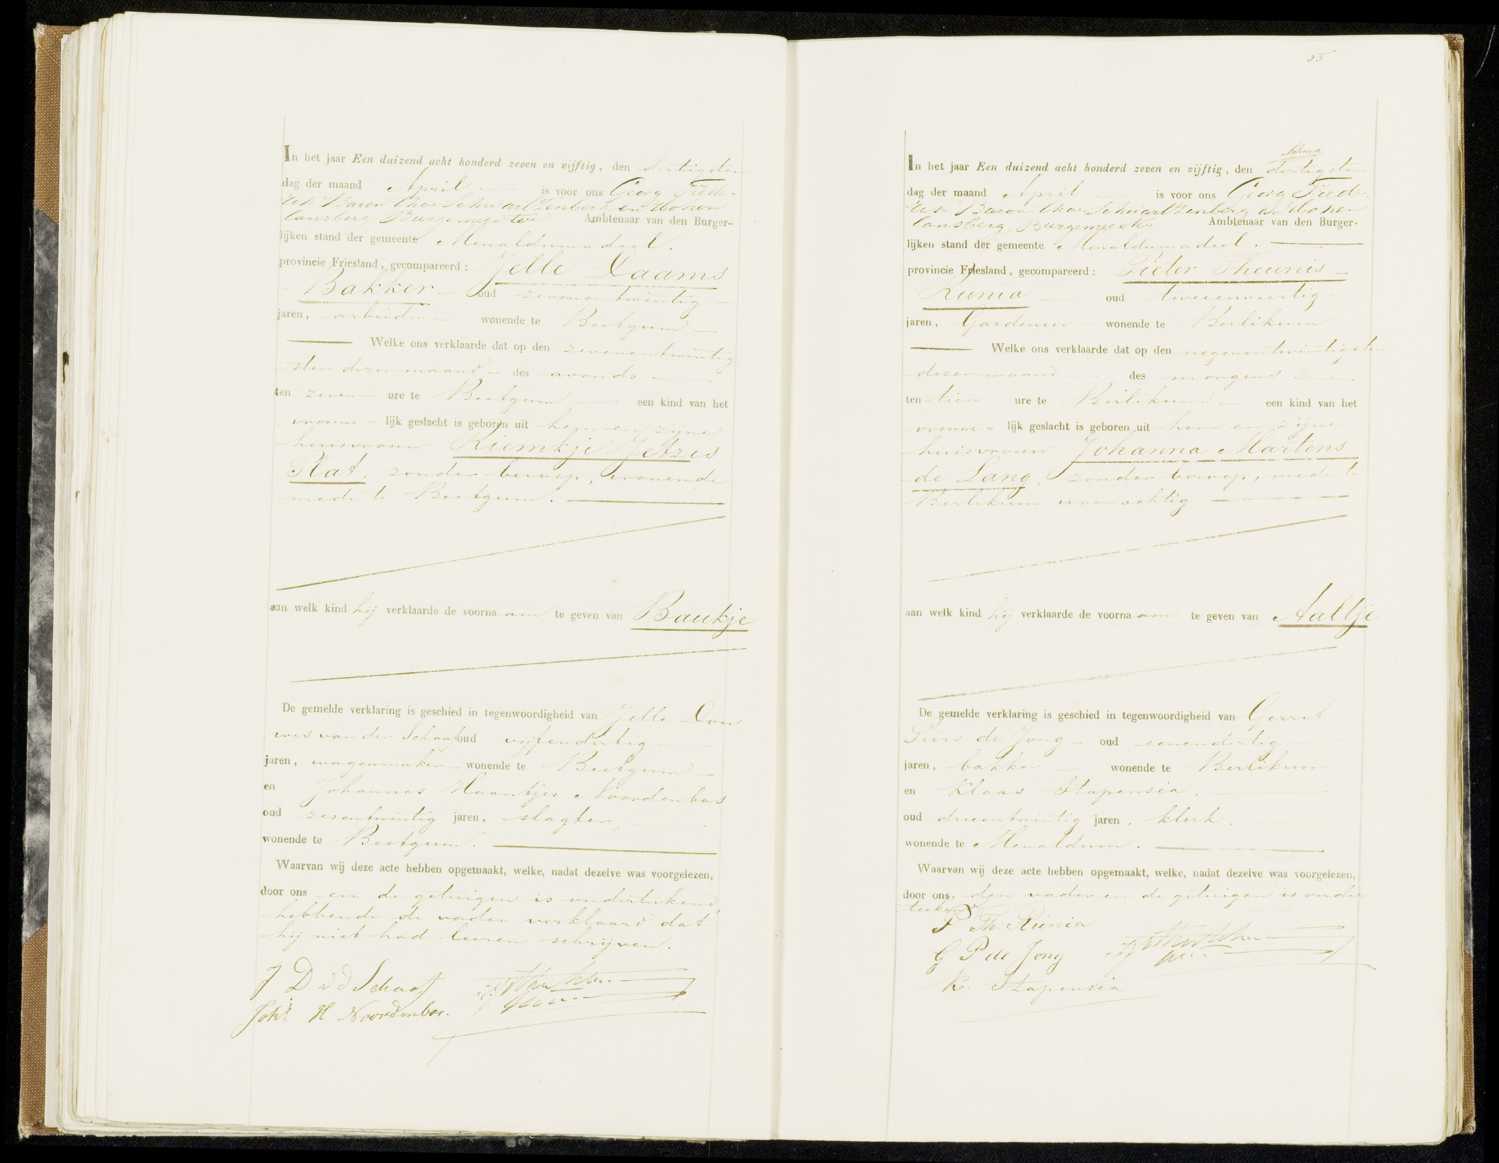 In het jaar Een duizend acht honderd zeven en vijftig, den dertigsten
dag der maand April is voor ons Georg Frede-
rik Baron thoe Schwartzenberg en Hohen
lansberg Burgemeester Ambtenaar van den Burger-
lijken stand der gemeente Menaldumadeel.
provincie Friesland, gecompareerd: Jelle Daams
Bakker oud zevenentwintig
jaren, arbeider wonende te Beetgum
Welke ons verklaarde dat op den zevenentwintig
sten dezer maand des avonds
ten zeven ure te Beetgum een kind van het
vrouwe lijk geslacht is geboren uit hem en zijne
huisvrouw Riemkje Jetzes
Plat, zonder beroep, wonende
mede te Beetgum.
aan welk kind hij verklaarde de voorna am te geven van Baukje
De gemelde verklaring is geschied in tegenwoordigheid van Jelle Dou
wes van der Schaaf oud vijfendertig
jaren, wagenmaker wonende te Beetgum
en Johannes Haantjes Noordenbos
oud zesentwintig jaren, slagter,
wonende te Beetgum.
Waarvan wij deze acte hebben opgemaakt, welke, nadat dezelve was voorgelezen,
door ons en de getuigen is onderteekend
hebbende de vader verklaard dat
hij niet had leeren schrijven.
J D v d Schaaf
Joh's H Noordenbos.
35
In het jaar Een duizend acht honderd zeven en vijftig, den dertigsten
dag der maand April is voor ons Georg Frede-
rik Baron thoe Schwartzenberg en Hohen
lansberg, Burgemeester Ambtenaar van den Burger-
lijken stand der gemeente Menaldumadeel.
provincie Friesland, gecompareerd: Pieter Theunis
Runia oud tweeenveertig
jaren, Gardenier wonende te Berlikum
Welke ons verklaarde dat op den negenentwintigsten
dezer maand des morgens
ten tien ure te Berlikum een kind van het
vrouwe lijk geslacht is geboren uit hem en zijne
huisvrouw Johanna Martens
de Lang, zonder beroep, mede te
Berlikum woonachtig
aan welk kind hij verklaarde de voorna am te geven van Aaltje
De gemelde verklaring is geschied in tegenwoordigheid van Gerrit
de Jong oud
jaren, bakker wonende te Berlikum
en Klaas Stapensea.
oud drieentwintig jaren, klerk.
wonende te Menaldum.
Waarvan wij deze acte hebben opgemaakt, welke, nadat dezelve was voorgelezen,
door ons, den vader en de getuigen is onder
teekend
P Th Runia
G P de Jong
K. Stapensea